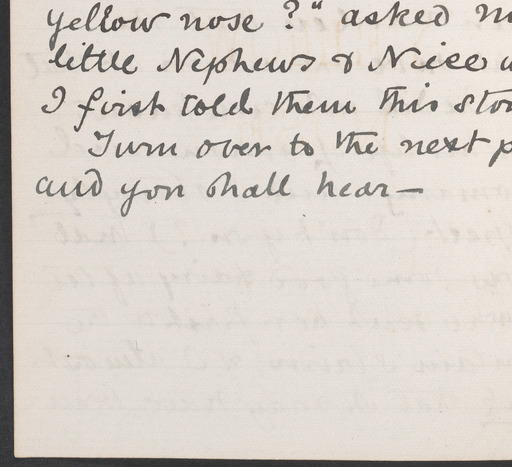 yellow nose?" asked
little Nephews & Niece
I first told them this
Turn over to the next
and you shall hear—